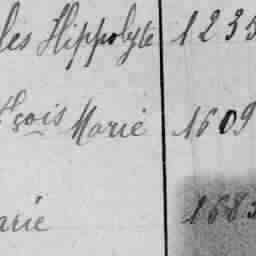 les Hippolyte 1235
fçois Marie 1609
arie 1683